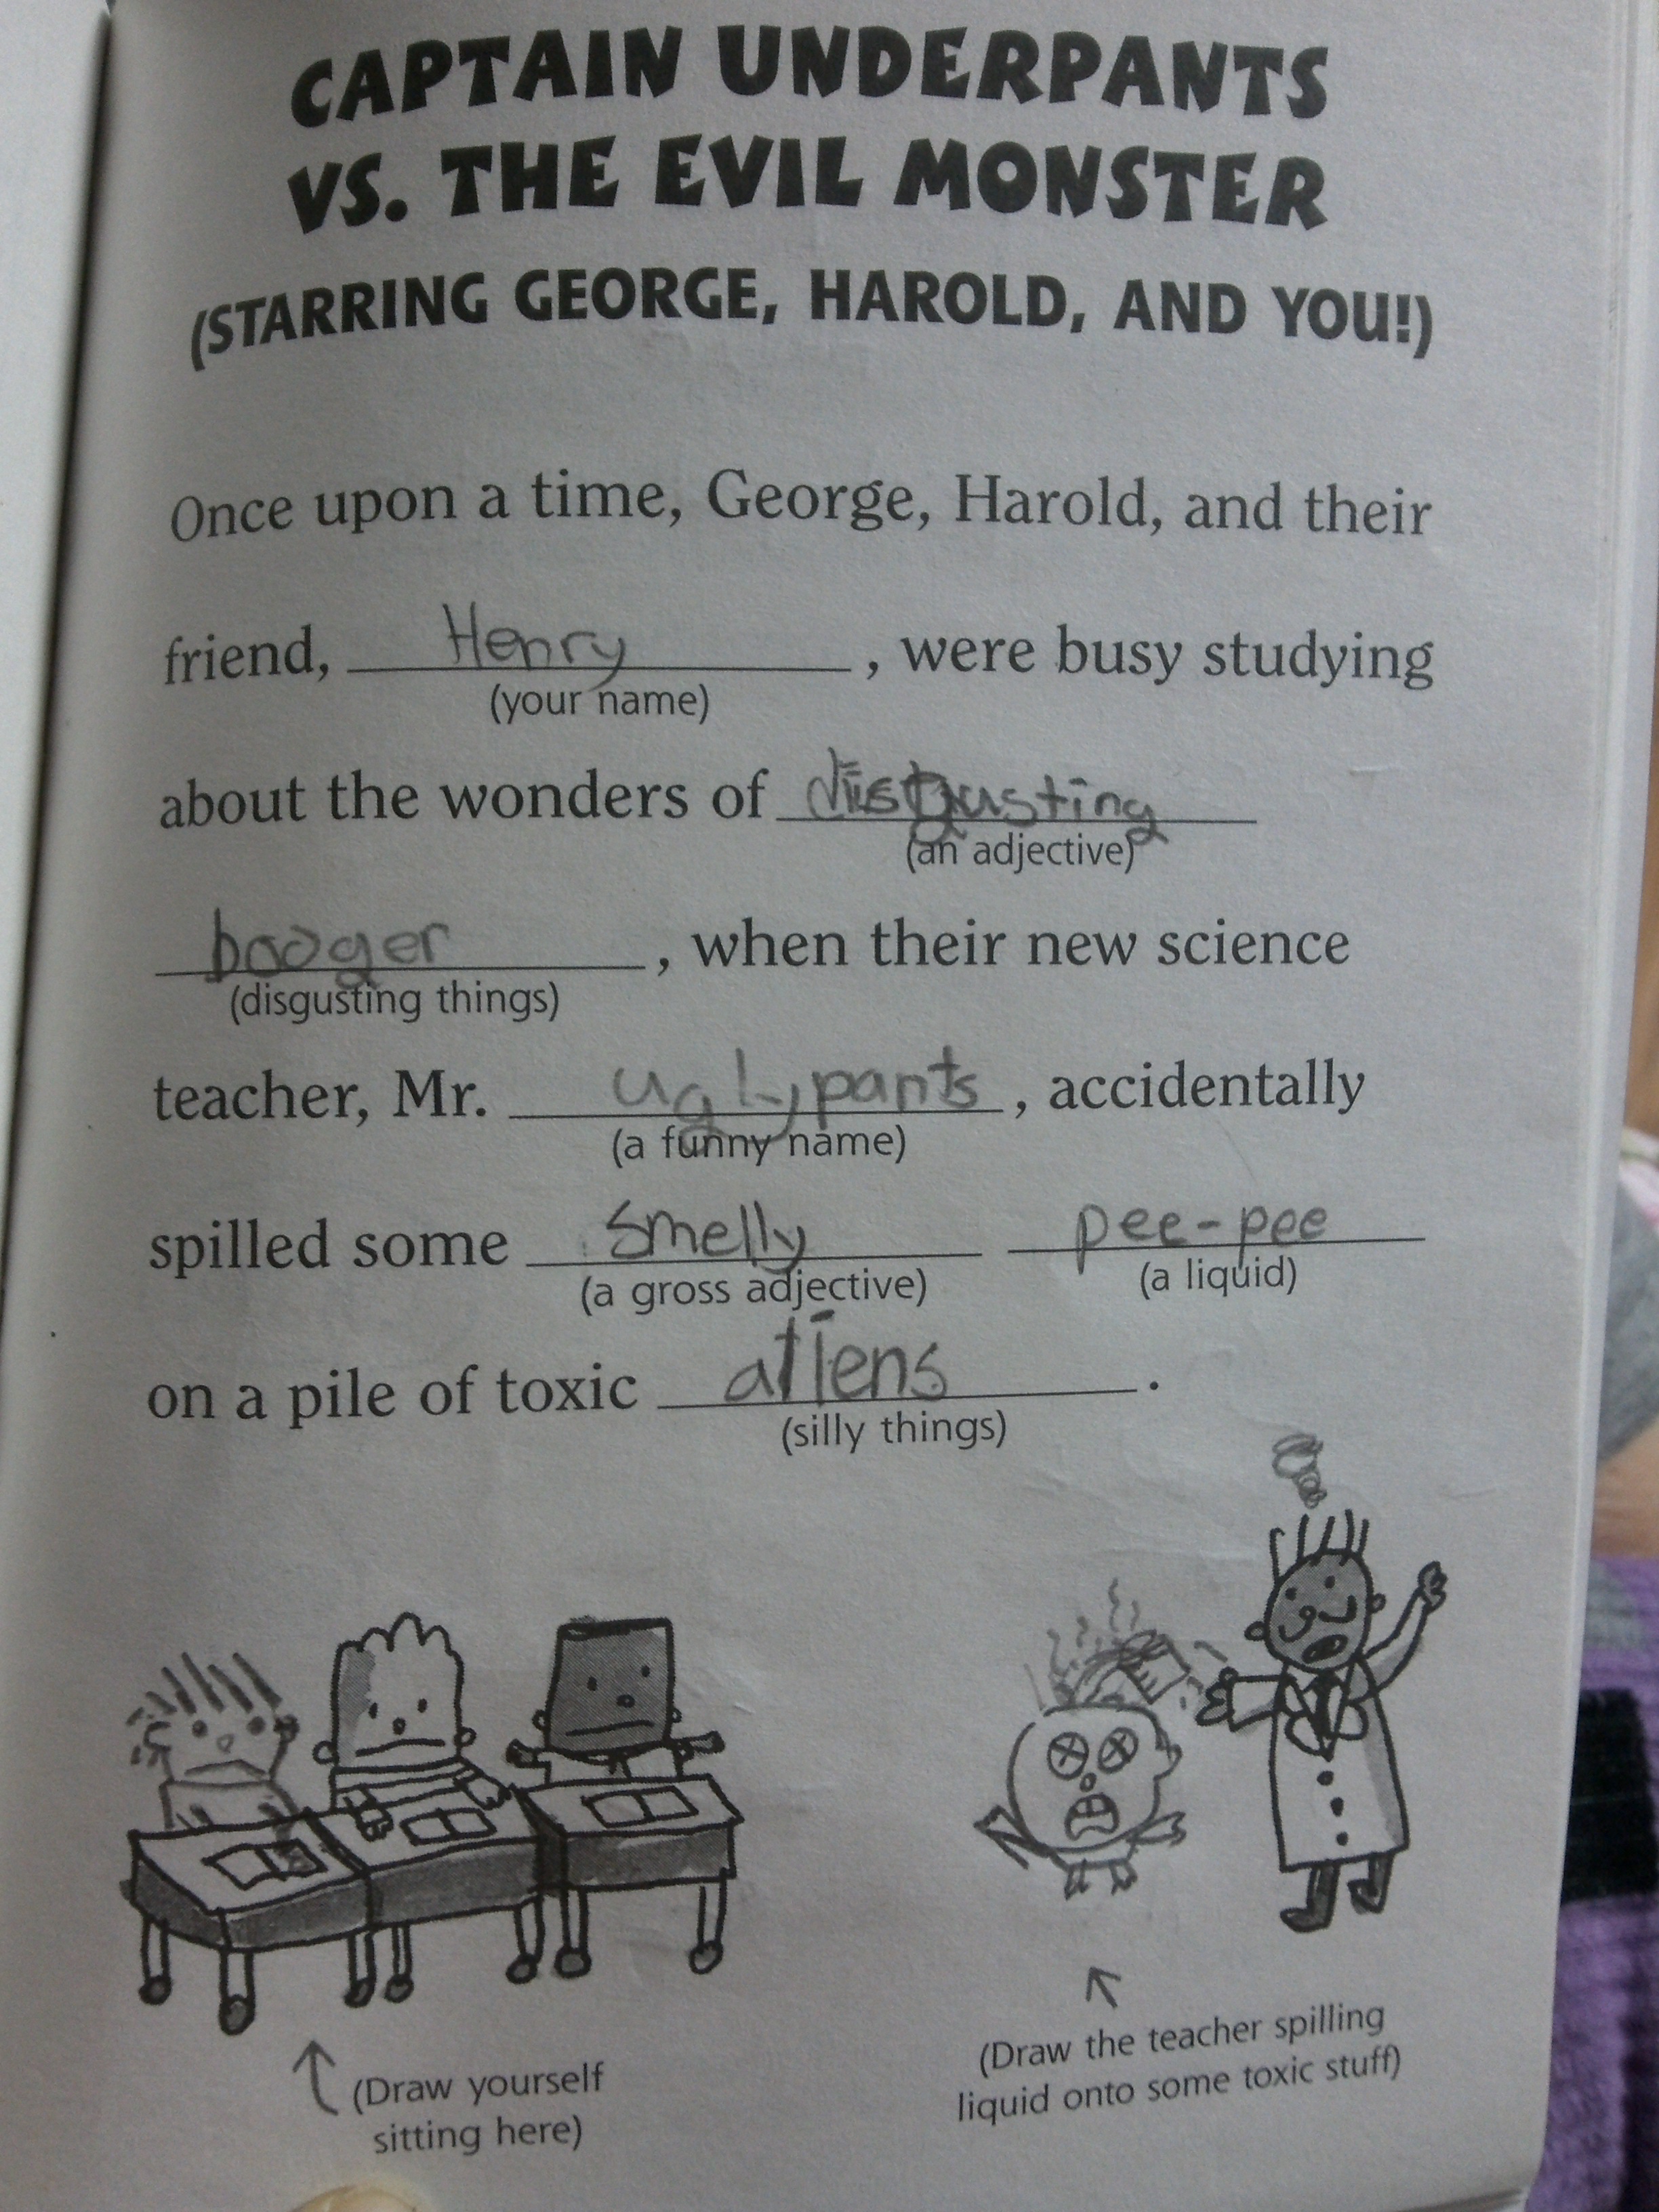 CAPTAIN UNDERPANTS
VS. THE EVIL MONSTER
(STARRING GEORGE, HAROLD, AND YOU!)
Once upon a time, George, Harold, and their
friend, Henry, were busy studying
(your name)
about the wonders of disgusting
(an adjective)
booger, when their new science
(disgusting things)
teacher, Mr. uglypants, accidentally
(a funny name)
spilled some smelly pee-pee
(a gross adjective) (a liquid)
on a pile of toxic aliens.
(silly things)
(Draw yourself
sitting here)
(Draw the teacher spilling
liquid onto some toxic stuff)